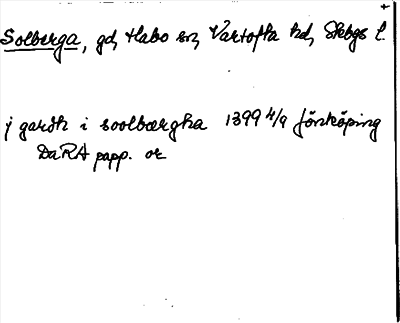 Solberga, gd, Habo sn, Vartofta hd, Skbgs l.
j gardh i soolbærgha 1399 4/9 Jönköping
DaRA papp. or